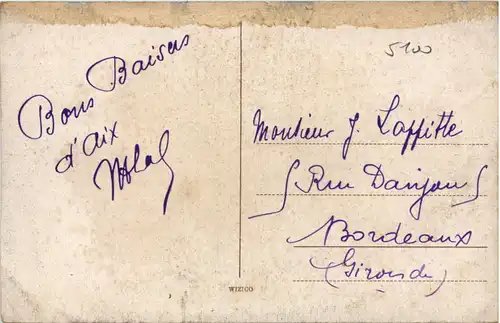 5100
Bons Baisers
d'aix
Monsieur J. Laffitte
5 Rue Danjou 5
Bordeaux
(Gironde)
WIZICO